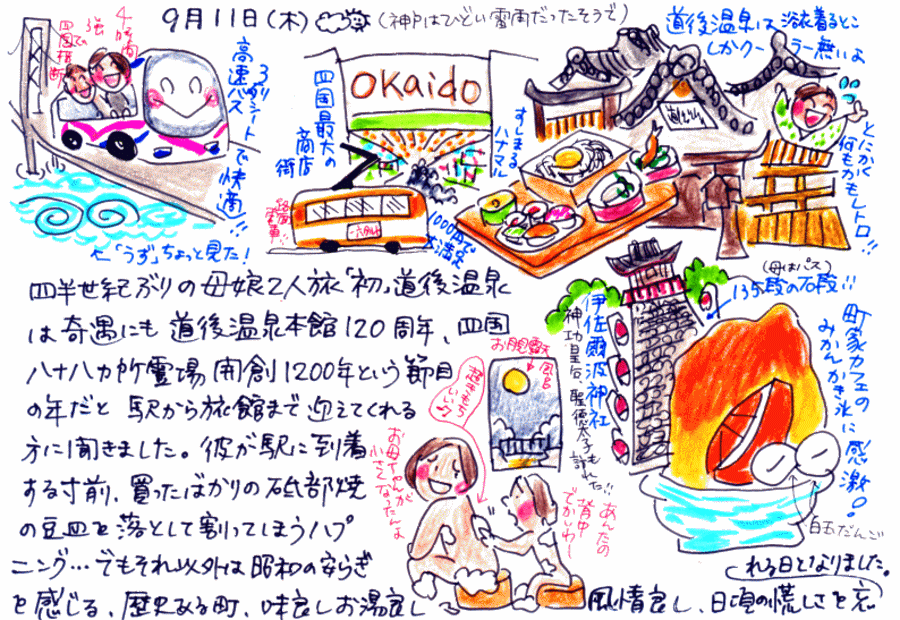 9月11日(木)
(神戸はひどい雷雨だったそうで)
4時間
強
四国まで横断
高速バス
3列シート
で快適!!
←「うず」ちょっと見た!
OKaido
四国最大の
商店街
路面電車!!
一六タルト
すしまる
ハナマル
1000円で
大満足
道後温泉は浴衣着るとこ
しかクーラー無いよ
とにかく
何もかもレトロ!!
四半世紀ぶりの母娘2人旅「初」道後温泉
は奇遇にも道後温泉本館120周年、四国
八十八カ所霊場開創1200年という節目
の年だと駅から旅館まで迎えてくれる
方に聞きました。彼が駅に到着
する寸前、買ったばかりの砥部焼
の豆皿を落として割ってしまうハプ
ニング…でもそれ以外は昭和の安らぎ
を感じる、歴史ある町、味良しお湯良し
風情良し、日頃の慌しさを忘
れる日となりました。
お月見露天
風呂
超きもち
いい♪
お母ちゃんが
小さくなったんよ
あんたの
背中
でかいわー
伊佐爾波神社
神功皇后、聖徳太子も
訪れた!!
(母はパス)
135段の石段!!
町家カフェの
みかんかき氷に
感激!
白玉だんご